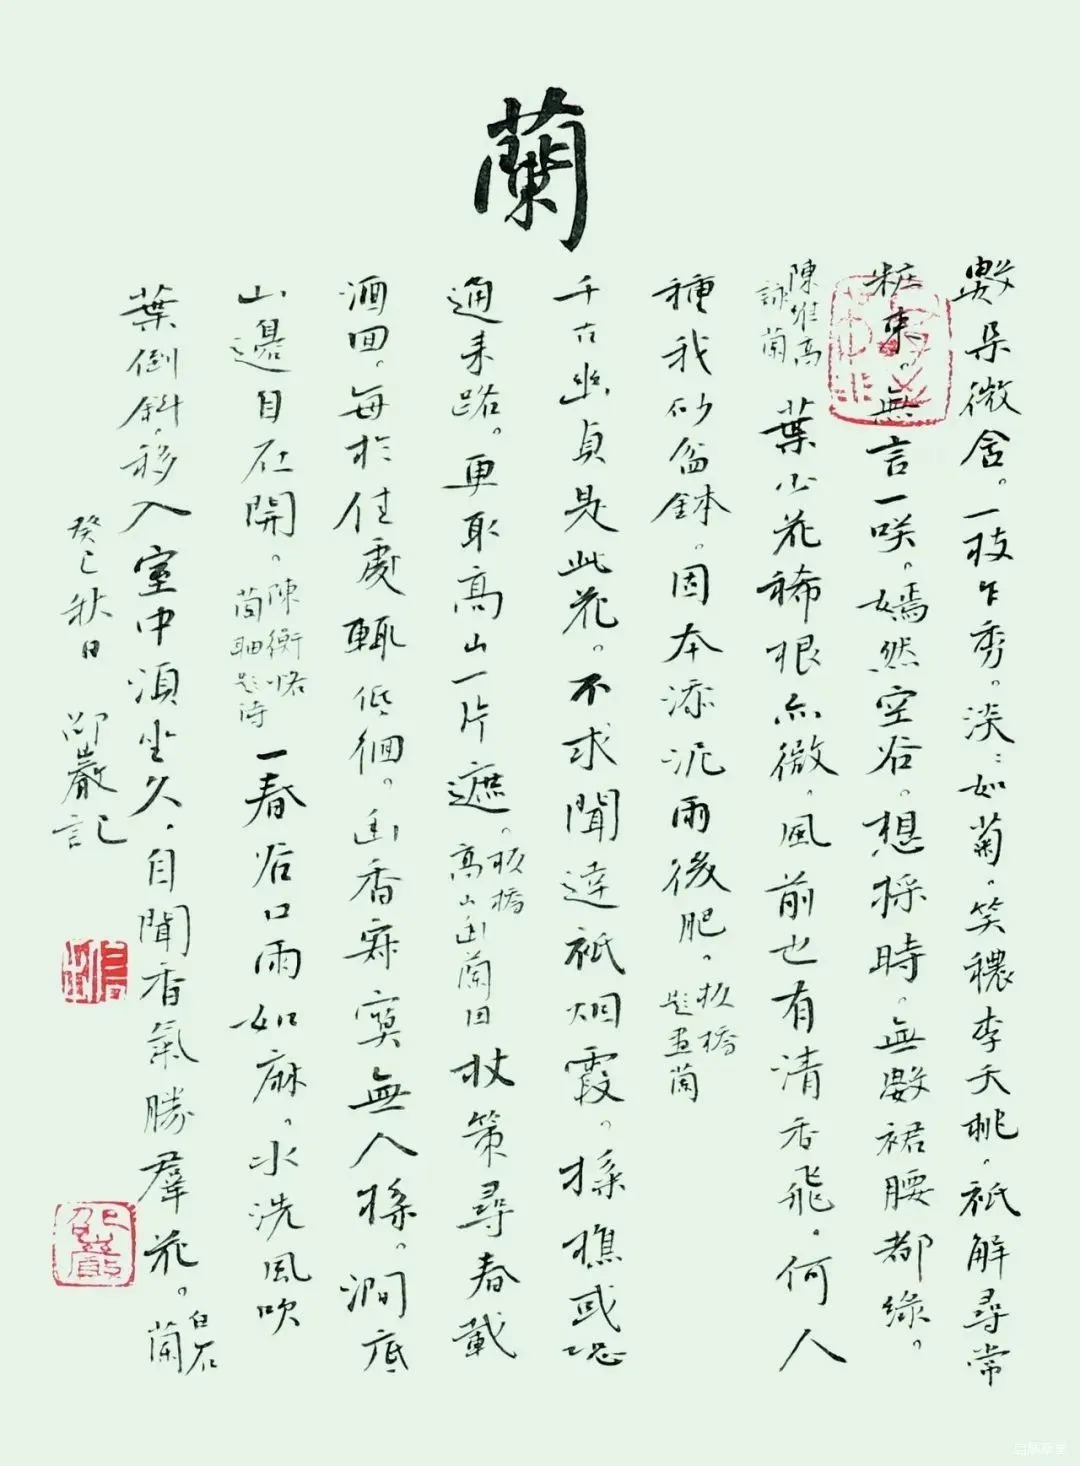 蘭
數朵微含。一枝乍秀。淡:如菊。笑穠李夭桃。祇解尋常
粧束。無言一咲。嫣然空谷。想採時。無數裙腰都綠。
陳維高
詠蘭
葉少花稀根亦微。風前也有清香飛。何人
種我砂盆鉢。因本添泥雨後肥。
板橋
題畫蘭
千古幽貞是此花。不求聞達祇烟霞。採樵或恐
通来路。更取高山一片遮。
板橋
高山幽蘭図
杖策尋春載
酒囬。每於佳處輒低徊。幽香寂寞無人採。澗底
山邊自在開。
陳衡恪
蘭軸題诗
一春谷口雨如麻。水洗風吹
葉倒斜。移入室中湏坐久。自聞香氣勝羣花。
白石
蘭
癸巳秋日 邵巖記